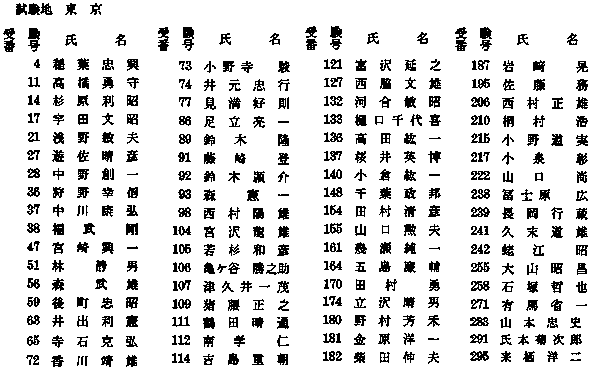 試験地 東京
受験番号 氏名
4 稲葉忠興
11 高橋勇守
14 杉原利昭
17 宇田文昭
21 浅野敏夫
27 遊佐晴彦
28 中野創一
36 狩野幸信
37 中川勝弘
38 堀武剛
47 宮崎興一
51 林静男
56 森武雄
59 後町忠昭
63 井出利憲
65 寺石克弘
72 香川靖雄
受験番号 氏名
73 小野寺駿
74 井元忠行
77 見満好則
86 足立亮一
89 鈴木隆
91 藤崎登
92 鈴木源介
93 森憲一
98 西村陽雄
104 宮沢龍雄
105 若杉和彦
106 亀ヶ谷勝之助
107 津久井一茂
109 猪腰正之
111 鶴田晴通
112 南孝仁
114 吉島重朝
受験番号 氏名
121 富沢延之
127 西脇文雄
132 河合敏昭
133 樋口千代喜
136 高田紘一
137 桜井英博
140 小倉紘一
148 千葉政邦
154 田村清彦
155 山口勲夫
161 幾瀬純一
164 五島康輔
170 田村勇
174 立沢晴男
180 野村芳禾
181 金原洋一
182 柴田伸夫
受験番号 氏名
187 岩崎晃
195 佐藤務
206 西村正雄
210 柄村浩
215 小野道実
217 小泉彰
222 山口尚
238 冨士原広
239 長岡行蔵
241 久末道雄
242 蛯江昭
255 大山昭昌
258 石塚哲也
271 有馬省一
283 山本忠史
291 氏本菊次郎
295 来栖洋二